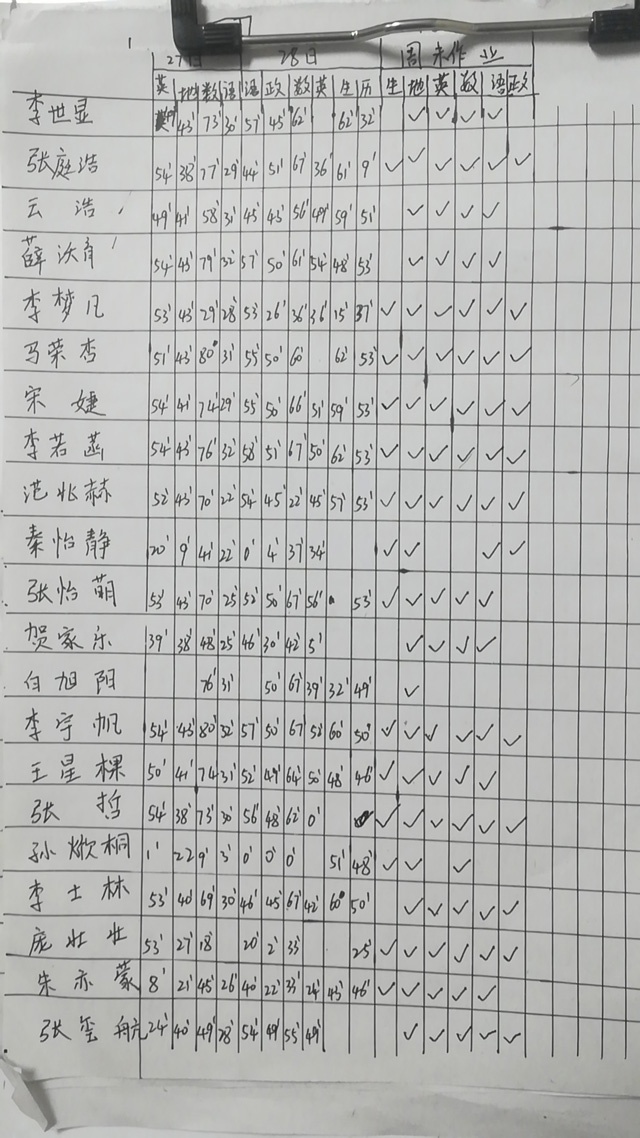 27日 28日 周末作业
英 地 数 语 语 政 数 英 生 历 生 地 英 数 语 政
李世显 43' 73' 30' 57' 45' 62' 62' 32' ✓ ✓ ✓ ✓
张庭浩 54' 38' 77' 29' 44' 51' 67' 36' 61' 9' ✓ ✓ ✓ ✓ ✓ ✓
云浩 49' 41' 58' 31' 45' 43' 56' 49' 59' 51' ✓ ✓ ✓ ✓
薛沃育 54' 43' 79' 32' 57' 50' 61' 54' 48' 53' ✓ ✓ ✓ ✓
李梦凡 53' 43' 29' 28' 53' 26' 36' 36' 15' 37' ✓ ✓ ✓ ✓ ✓ ✓
马荣杏 51' 43' 80' 31' 55' 50' 60' 62' 53' ✓ ✓ ✓ ✓ ✓ ✓
宋婕 54' 41' 74' 29' 55' 50' 66' 51' 59' 53' ✓ ✓ ✓ ✓ ✓ ✓
李若菡 54' 43' 76' 32' 58' 51' 67' 50' 62' 53' ✓ ✓ ✓ ✓ ✓ ✓
范兆赫 52' 43' 70' 22' 54' 45' 22' 45' 57' 53' ✓ ✓ ✓ ✓ ✓ ✓
秦怡静 20' 9' 41' 22' 0' 4' 37' 34' ✓ ✓ ✓ ✓
张怡萌 53' 43' 70' 25' 52' 50' 67' 56' 53' ✓ ✓ ✓ ✓ ✓
贺家乐 39' 38' 48' 25' 46' 30' 42' 5' ✓ ✓ ✓ ✓
白旭阳 76' 31' 50' 67' 39' 32' 49' ✓
李宇帆 54' 43' 80' 32' 57' 50' 67' 58' 60' 50' ✓ ✓ ✓ ✓ ✓ ✓
王星棵 50' 41' 74' 31' 52' 49' 64' 50' 48' 46' ✓ ✓ ✓ ✓ ✓
张哲 54' 38' 73' 30' 56' 48' 62' 0' ✓ ✓ ✓ ✓ ✓ ✓
孙桐 1' 22 9' 3' 0' 0' 0' 51' 48' ✓ ✓ ✓
李士林 53' 40' 69' 30' 46' 45' 67' 42' 60' 50' ✓ ✓ ✓ ✓ ✓
庞壮壮 53' 27' 18' 20' 2' 33' 25' ✓ ✓ ✓ ✓ ✓ ✓
朱亦蒙 8' 21' 45' 26' 40' 22' 33' 24' 43' 46' ✓ ✓ ✓ ✓ ✓
张玺航 24' 40' 49' 28' 54' 49' 55' 49' ✓ ✓ ✓ ✓ ✓